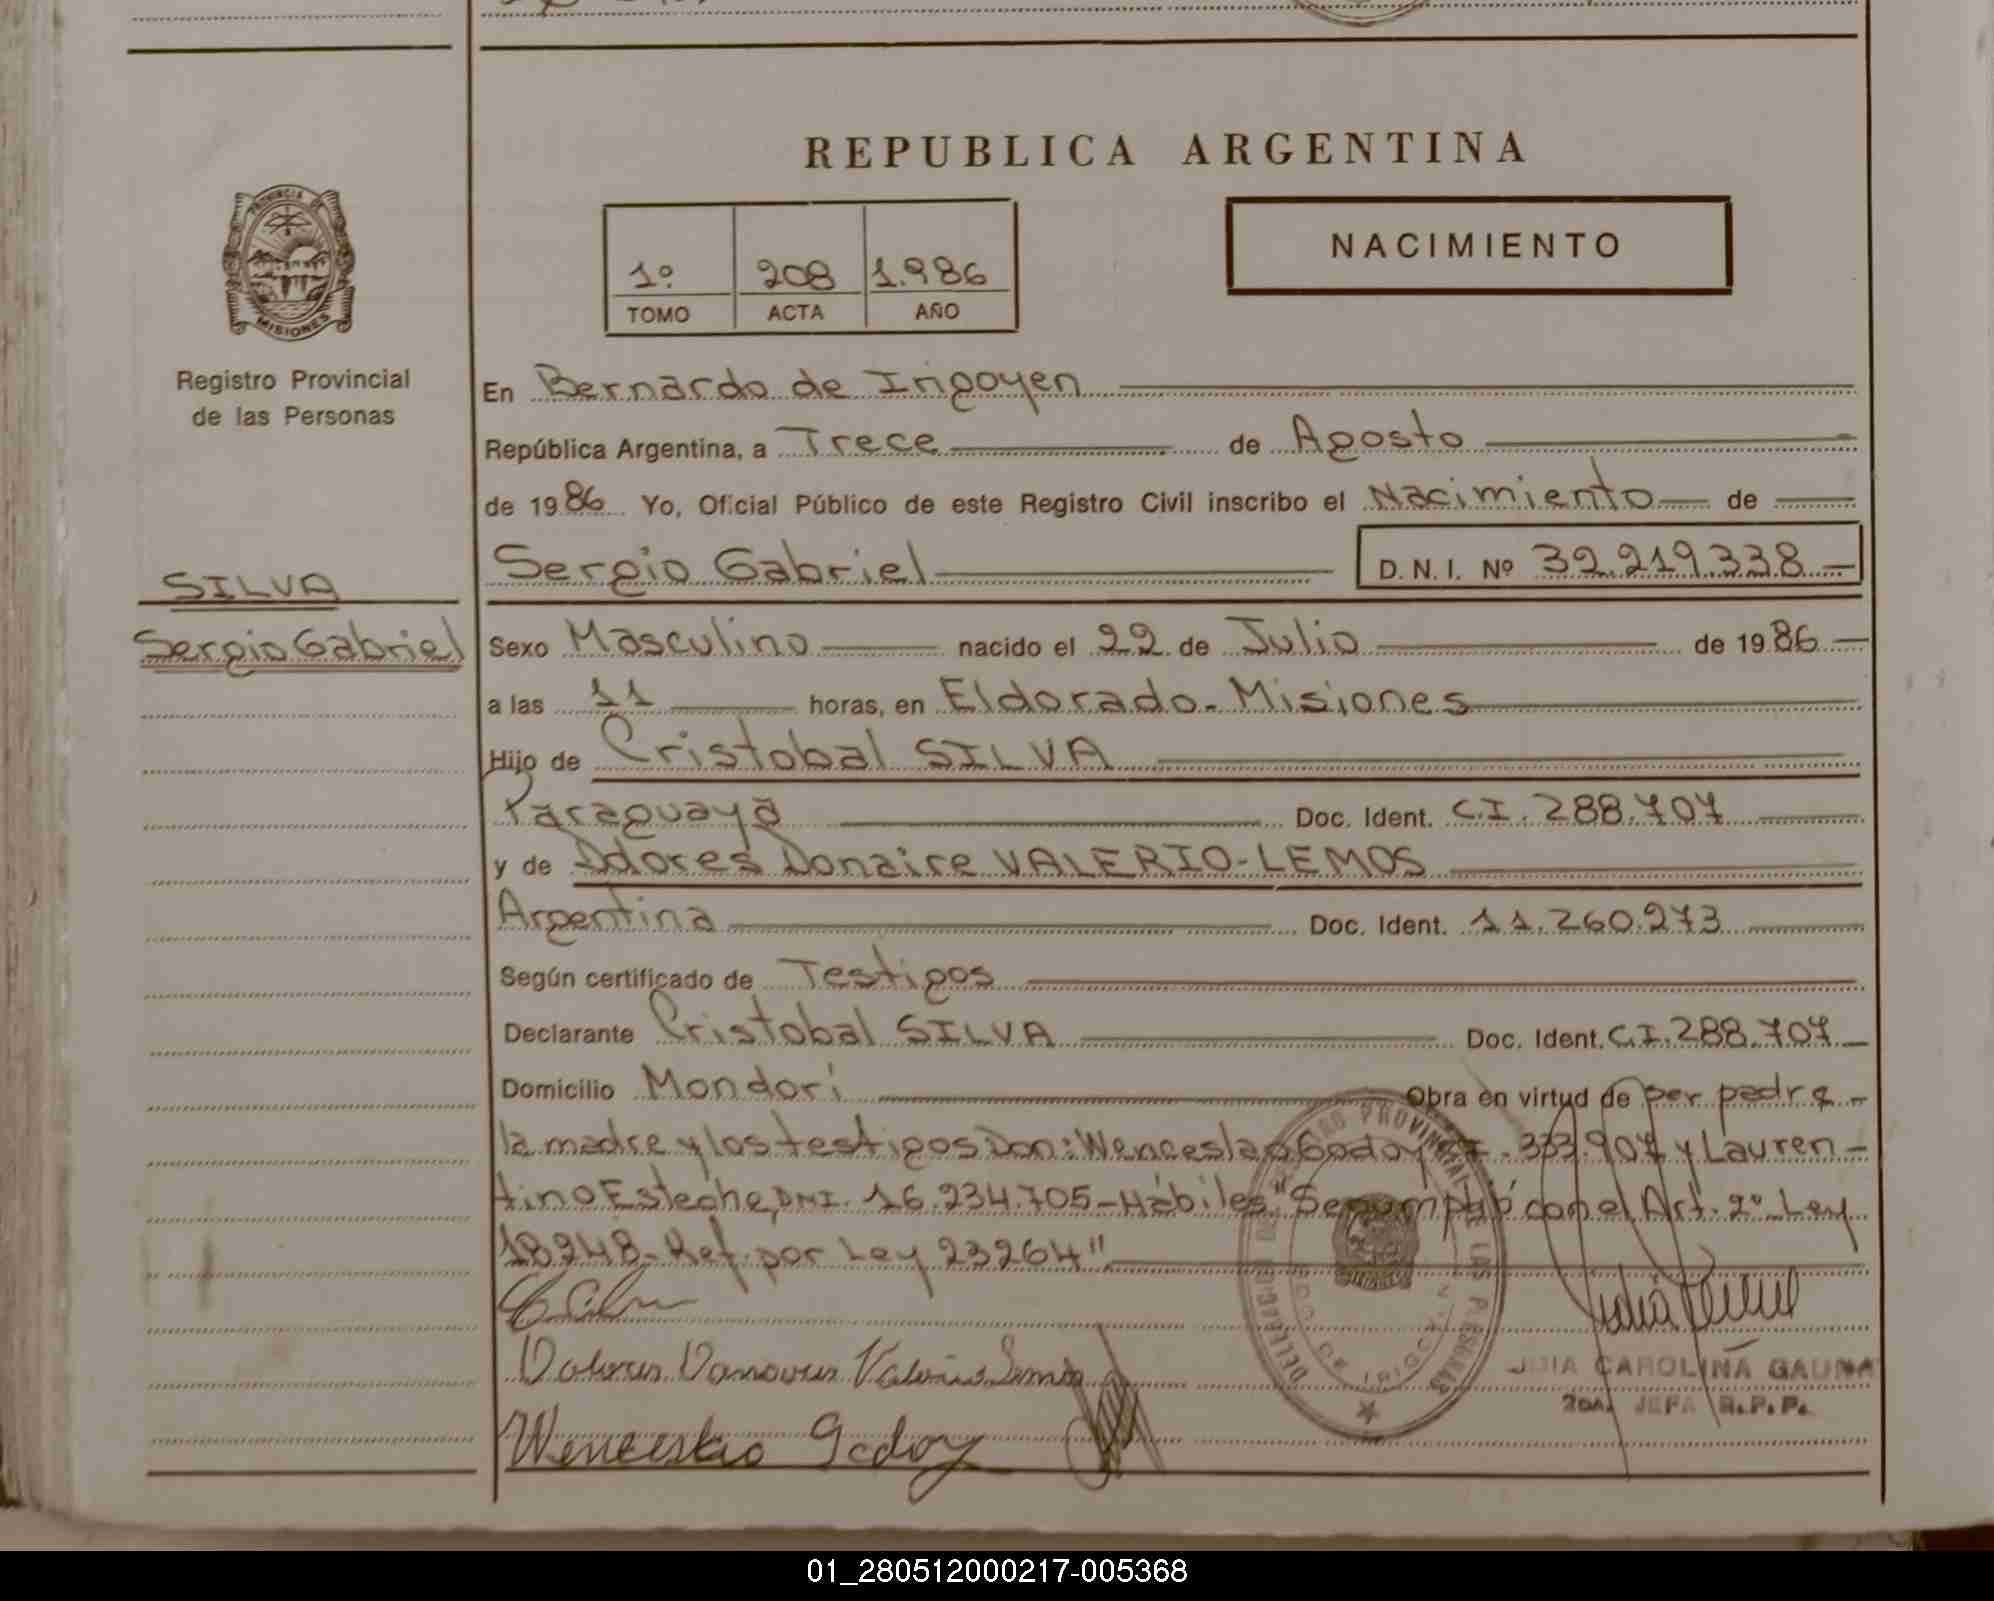 REPUBLICA ARGENTINA
PROVINCIA DE
MISIONES
Registro Provincial
de las Personas
1º 208 1.986
TOMO ACTA AÑO
NACIMIENTO
En Bernardo de Irigoyen
República Argentina, a Trece de Agosto
de 1986 Yo, Oficial Público de este Registro Civil inscribo el Nacimiento de
Sergio Gabriel D. N. I. Nº 32.219.338
SILVA
Sergio Gabriel
Sexo Masculino nacido el 22 de Julio de 1986
a las 11 horas, en Eldorado - Misiones
Hijo de Cristobal SILVA
Paraguaya Doc. Ident. C.I. 288.707
y de Dolores Donaire VALERIO-LEMOS
Argentina Doc. Ident. 11.260.273
Según certificado de Testigos
Declarante Cristobal SILVA Doc. Ident. C.I. 288.707
Domicilio Mondorí Obra en virtud de ser padre -
la madre y los testigos Don: Wenceslao Godoy 333.907 y Lauren-
tino Esteche, DNI. 16.234.705 - Hábiles "Se cumplió con el Art. 2º Ley
18248 - Ref. por Ley 23264"
Wenceslao Godoy
JULIA CAROLINA GAUNA
2DA. JEFA R.P.P.
01_280512000217-005368